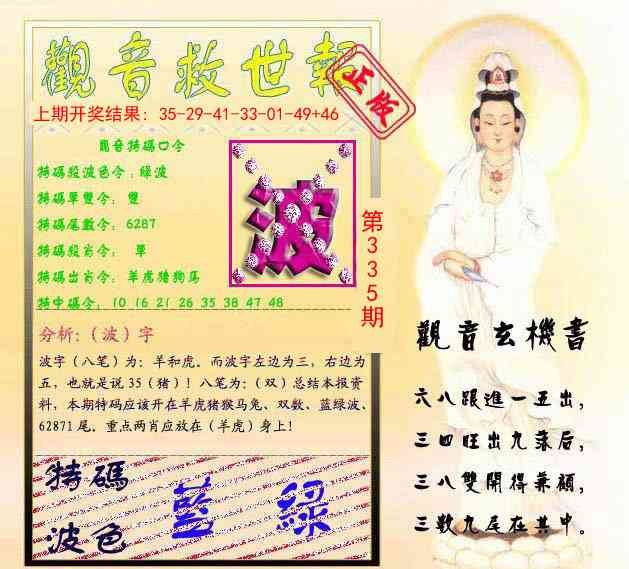 觀音救世報
正版
上期开奖结果：35-29-41-33-01-49+46
觀音特碼口令
特碼段波色令：綠波
特碼單雙令： 雙
特碼尾數令： 6287
特碼段肖令： 單
特碼出肖令： 羊虎猪狗馬
特中碼令： 10 16 21 26 35 38 47 48
波
第335期
分析:（波）字
波字（八笔）为：羊和虎。而波字左边为三，右边为
五，也就是说 35（猪）！八笔为：（双）总结本报资
料，本期特码应该开在羊虎猪猴马兔、双数、蓝绿波、
62871 尾。重点两肖应放在（羊虎）身上！
特碼
波色
藍 綠
觀音玄機書
六八跟進一五出，
三四旺出九落后，
三八雙開得兼顧，
三數九尾在其中。